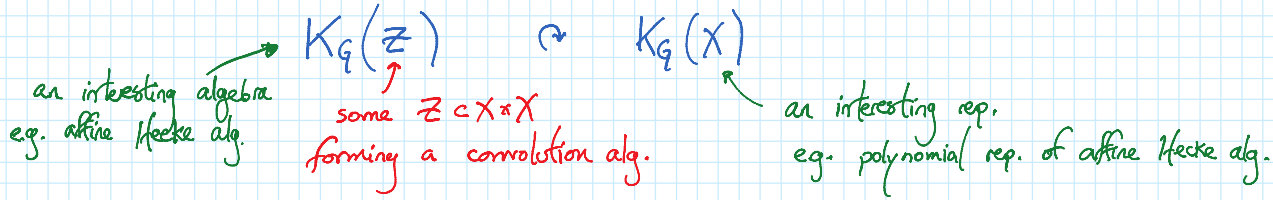 K_G(Z) ↷ K_G(X)
an interesting algebra
e.g. affine Hecke alg.
some Z ⊂ X × X
forming a convolution alg.
an interesting rep.
e.g. polynomial rep. of affine Hecke alg.